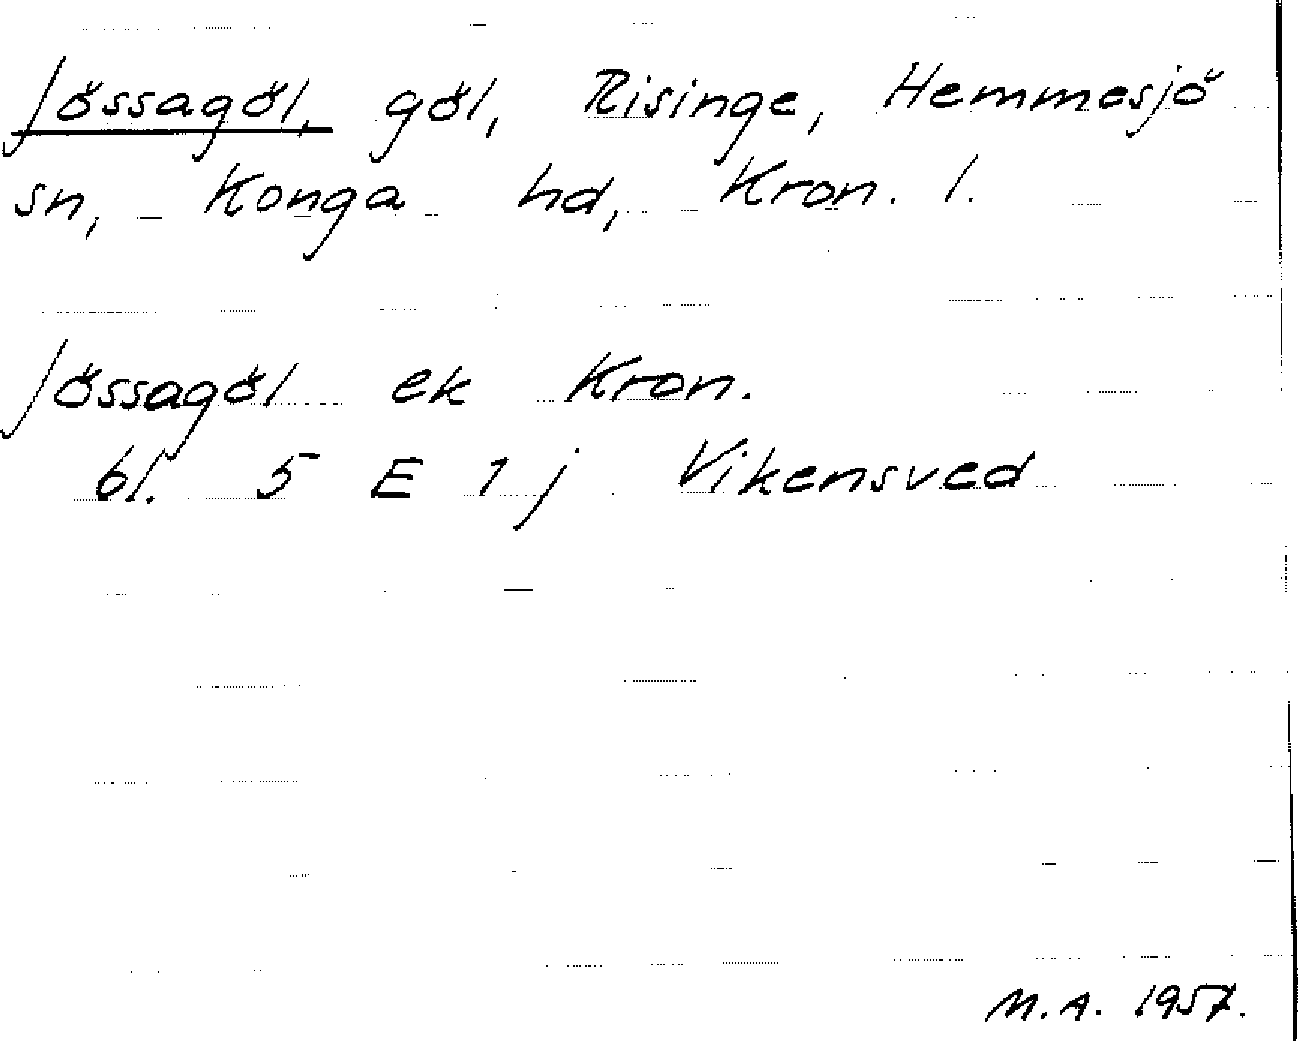 Jössagöl, göl, Risinge, Hemmesjö
sn, Konga hd, Kron. l.
Jössagöl ek Kron.
bl. 5 E 1 j Vikensved
M.A. 1957.